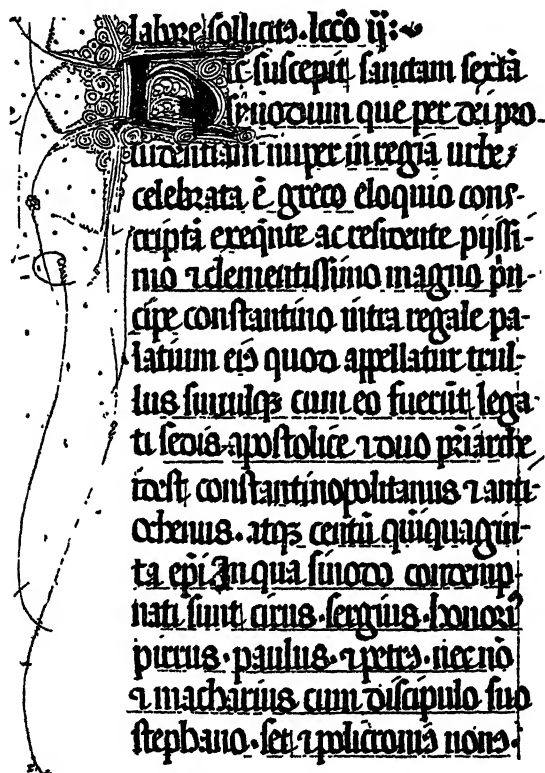 labore sollicitꝰ. lccō ij:
Hic suscepit sanctam sextā
synodum que per dei pro-
uidentiam nuper in regia urbe
celebrata ē greco eloquio cons-
criptā exeqn̄te ac residente pijssi-
mo ⁊ clementissimo magno p̄n-
cipe constantino intra regale pa-
latium eiꝰ quod appellatur trul-
lus simulqꝫ cum eo fuerūt lega-
ti sedis apostolice ⁊ duo pr̄iarche
idest constantinopolitanus ⁊ anti-
ochenus. atqꝫ centū quīquagin-
ta ep̄i In qua sinodo contemp-
nati sunt cirus. sergius. honoriꝰ
pirrus. paulus. ⁊ petrꝰ. necnō
⁊ macharius cum discipulo suo
stephano. set ⁊ policroniꝰ nouꝰ.